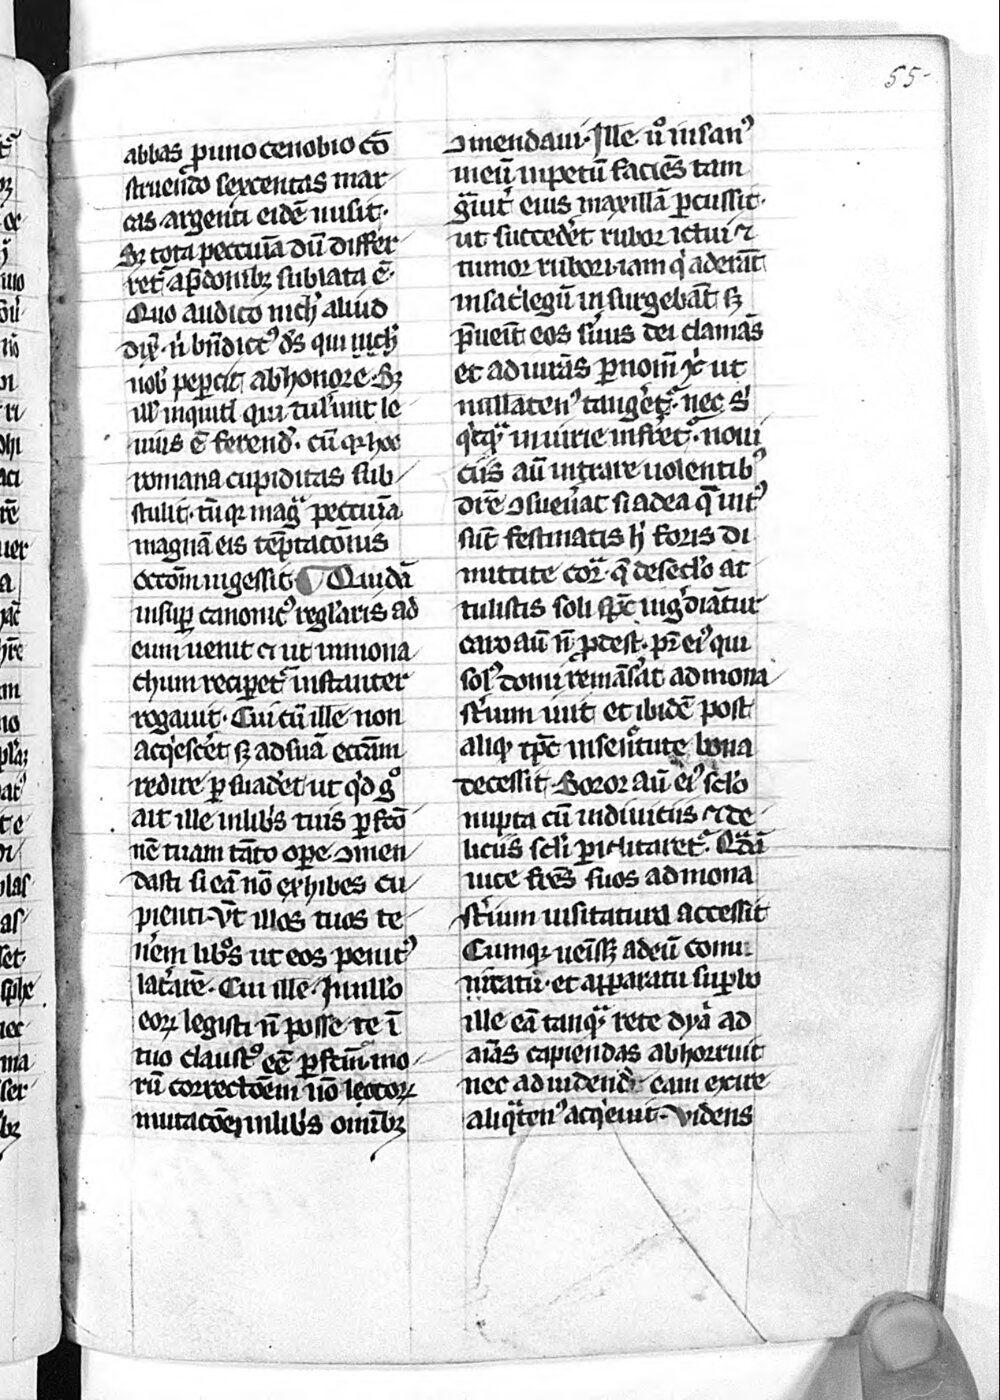 55-
abbas ꝑ uno cenobio cō
struendo sexcentas mar
cas argenti eidē misit.
Sꝫ tota peccunia dū differ
ret᷑ a p̄donibꝫ sublata ē.
Quo audito nich̾ aliud
dix̄. n̾ bn̄dict᷒ ds̄ qui nich̾
nob̾ peꝑcit ab honore. Sꝫ
ill̾ inquit qui tulerunt le
uius ē ferend̾. cū qꝫ hoc
romana cupiditas sub
stulit. tū qꝫ mag̾ peccunia
magnā eis tēptac̄onis
occōm ingessit. Quidā
insuꝑ canonic᷒ regl̾aris ad
eum uenit et ut in mona
chum reciꝑet᷑ instanter
rogauit. Cui cū ille non
acq̾escēt sꝫ ad suā ecc̄am
redire ꝑsuadēt ut q̾d g̊
ait ille in lib̾s tuis ꝑfcō
nē tuam tāto oꝑe ꝯmen
dasti si eā nō exhibes cu
pienti. Vt̄ illos tuos te
n̾em lib̾os ut eos penit᷒
lac̾arē. Cui ille. Jn null̾o
eoꝝ legisti n̄ posse te ī
tuo claust̊ eē ꝑfcm̄ mo
rū correcc̄oēm nō lectoꝝ
mutac̄oēm in lib̾s om̄ibꝫ
ꝯmendaui. Jlle u̾o insan᷒
in eū inpetū faciēs tam
g̾uit̾ eius maxillā ꝑcussit.
ut succedēt rubor ictui ⁊
tumor rubori. iam q̾ aderāt
in sac̾legū insurgebāt sꝫ
p̄ueīt eos s̾uus dei clamās
et adiurās ꝑ nom̄ xp̄i ut
nullaten᷒ tanḡet᷑. nec s̾
q̾cq̾ iniurie inferret᷑. noui
ciis aū intrare uolentib᷒
dic̄e ꝯsueuāt si ad ea q̄ int᷒
sūt festinatis h̾ foris di
mittite corꝑa q̄ de secl̾o at
tulistis soli sp̄c ing̾diāt᷑
caro aū n̄ ꝓdest. pr̄ ei᷒ qui
sol᷒ domi remāsat ad mona
st̾ium iuit et ibidē post
aliqꝫ tp̄c in senectute bona
decessit. Soror aū ei᷒ scl̾o
nupta cū in diuitiis ⁊ de
liciis scl̾i ꝑiclitaret᷑. Q̾dā
uice fr̄es suos ad mona
st̾ium uisitatura accessit
Cumqꝫ uēisꝫ ad eū comi
nitatu et apparatu suꝑbo
ille eā tanq̾ rete dyab̾ ad
aīas capiendas abhorruit
nec ad uidend̾ eam exire
aliq̾ten᷒ acq̾euit. Videns